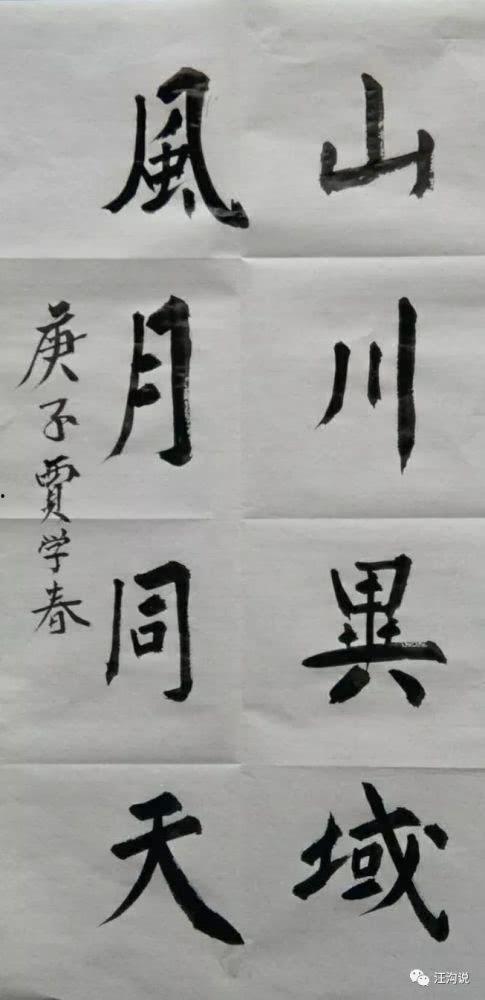 山川異域
風月同天
庚子賈学春
汪沟说